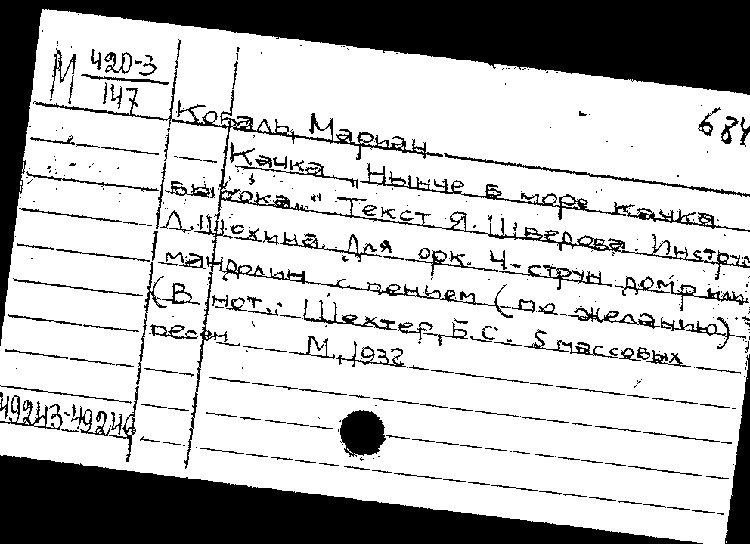 М 420-3
147
684
Коваль, Мариан
Качка „Нынче в море качка
высока..." Текст Я. Шведова. Инструм
Л. Шехина. Для орк. 4-струн домр или
мандолин с пением (по желанию)
(В нот.: Шехтер, Б.С. 5 массовых
песен. М., 1932
49243-49246